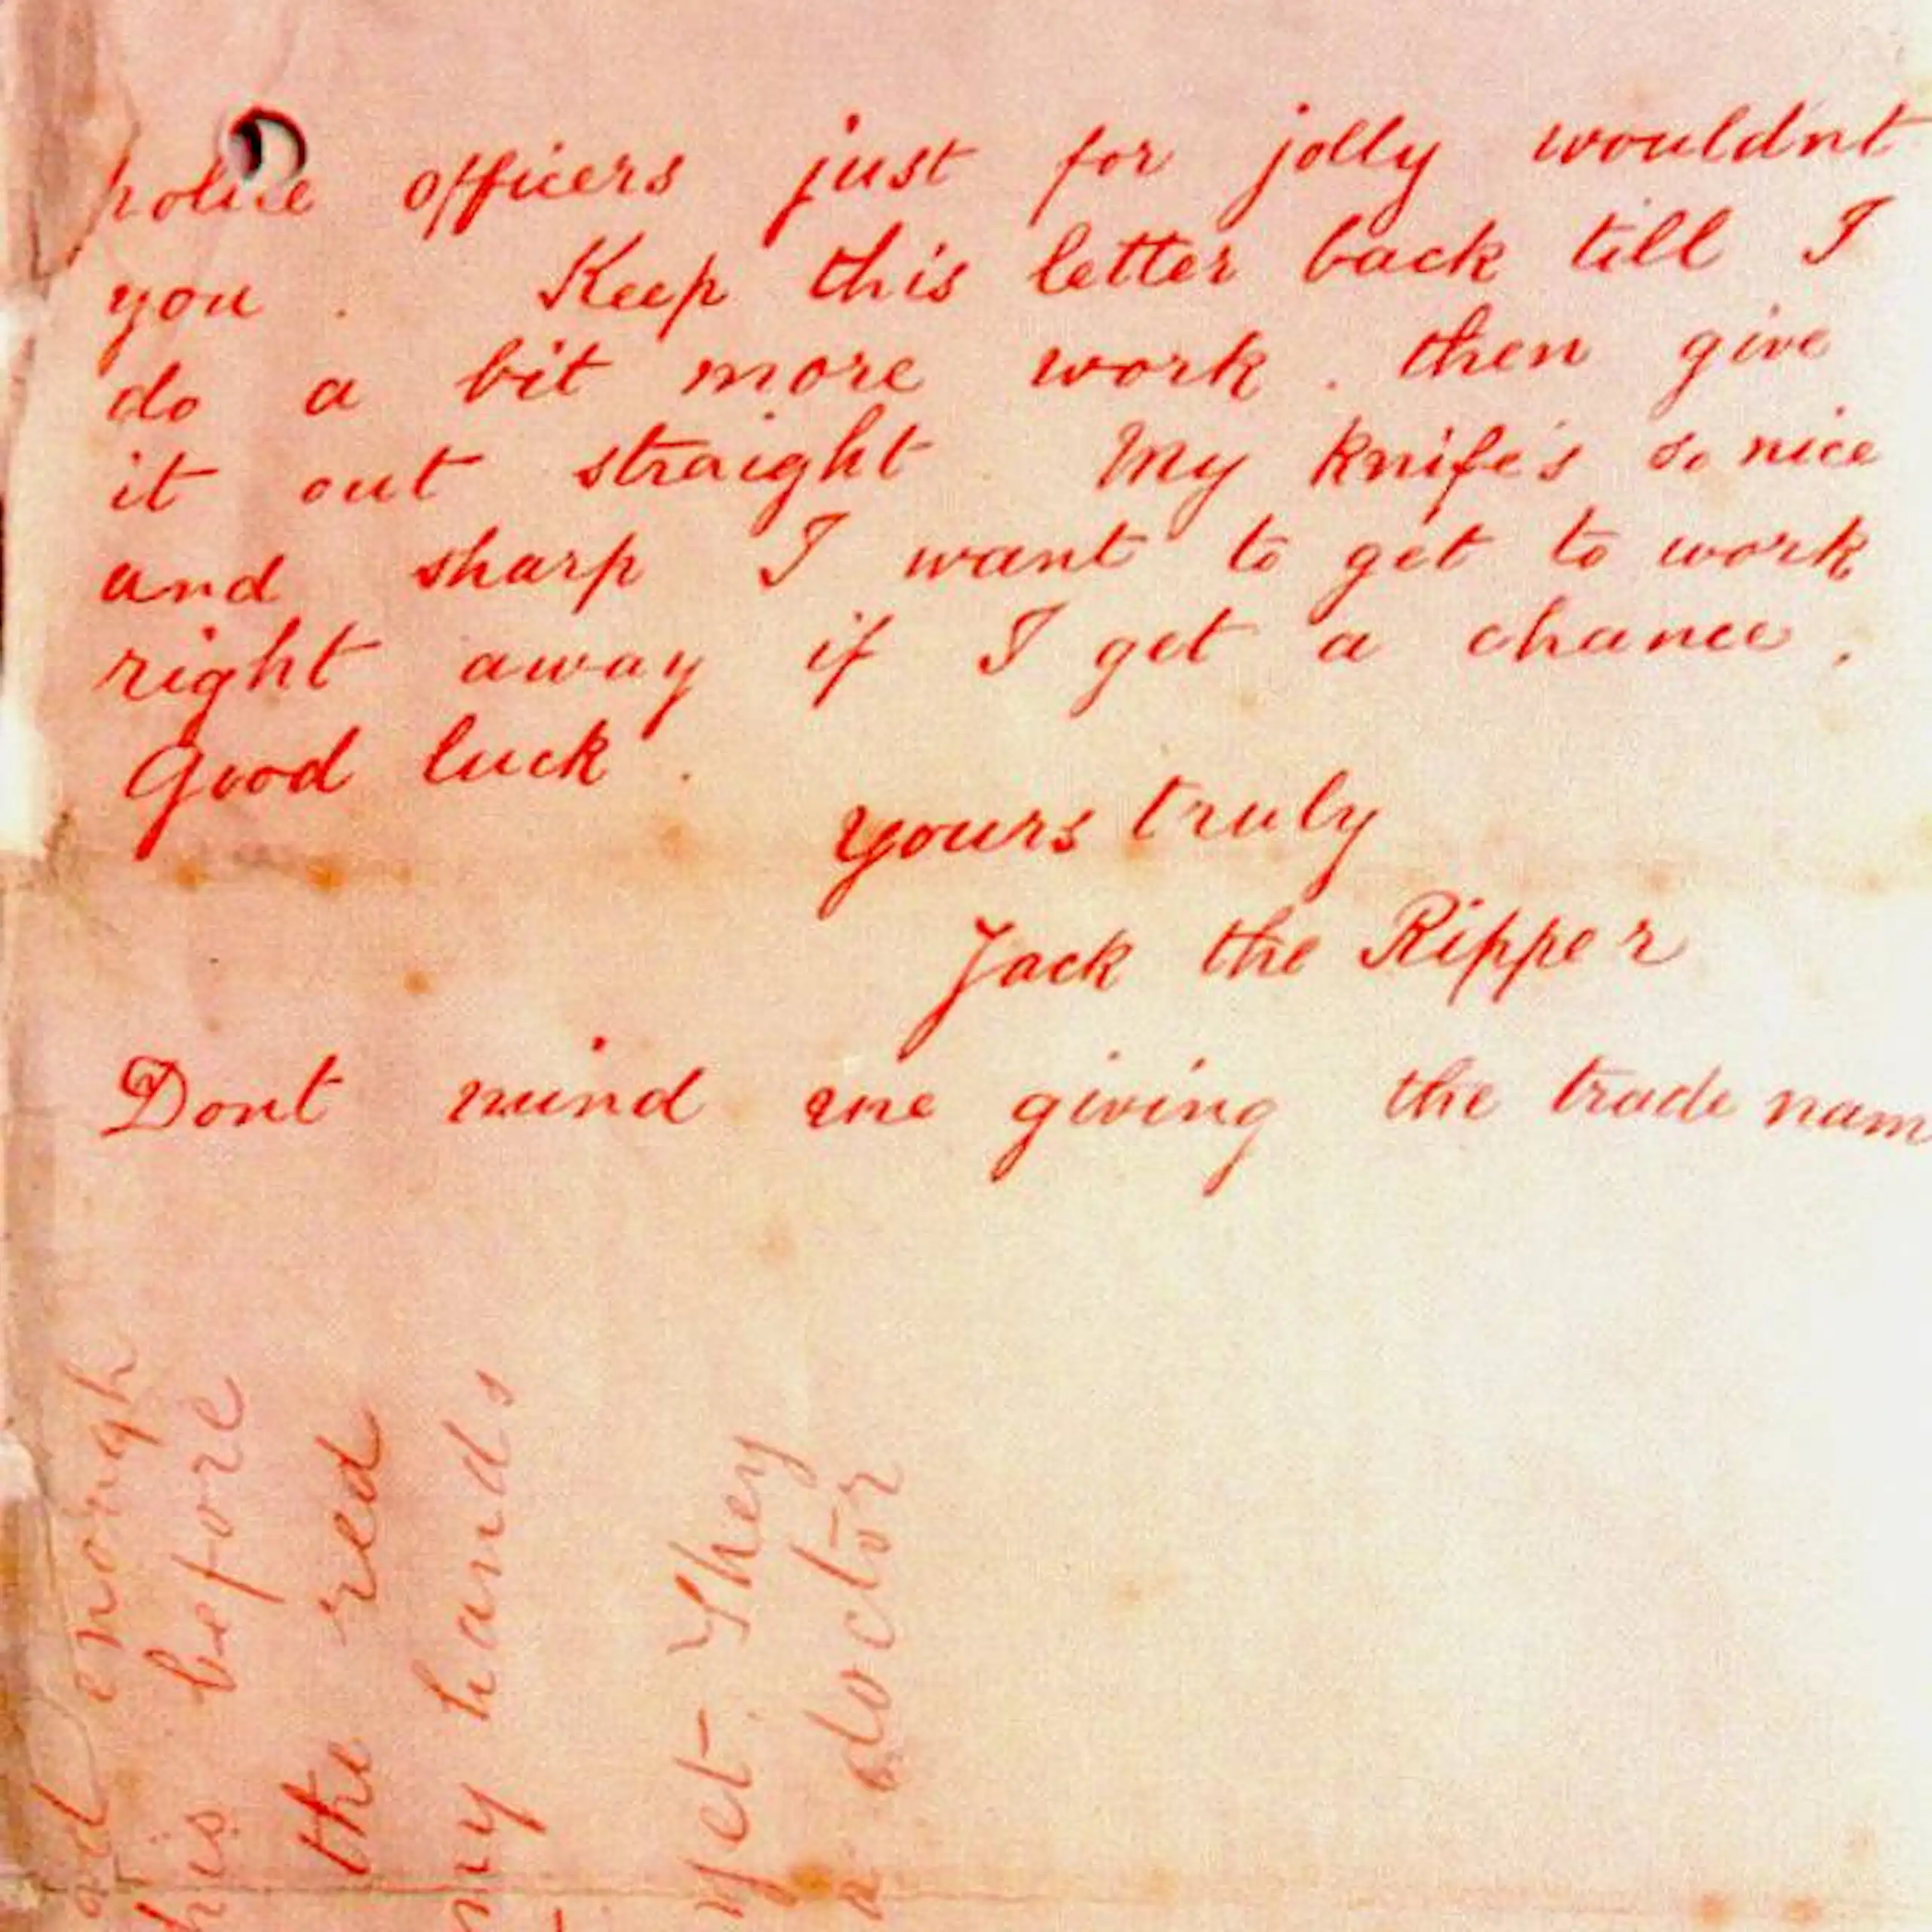 police officers just for jolly wouldn't
you . Keep this letter back till I
do a bit more work . then give
it out straight My knife's so nice
and sharp I want to get to work
right away if I get a chance .
Good luck .
yours truly
Jack the Ripper
Dont mind me giving the trade nam
enough
his before
the red
my hands
yet. They
a doctor